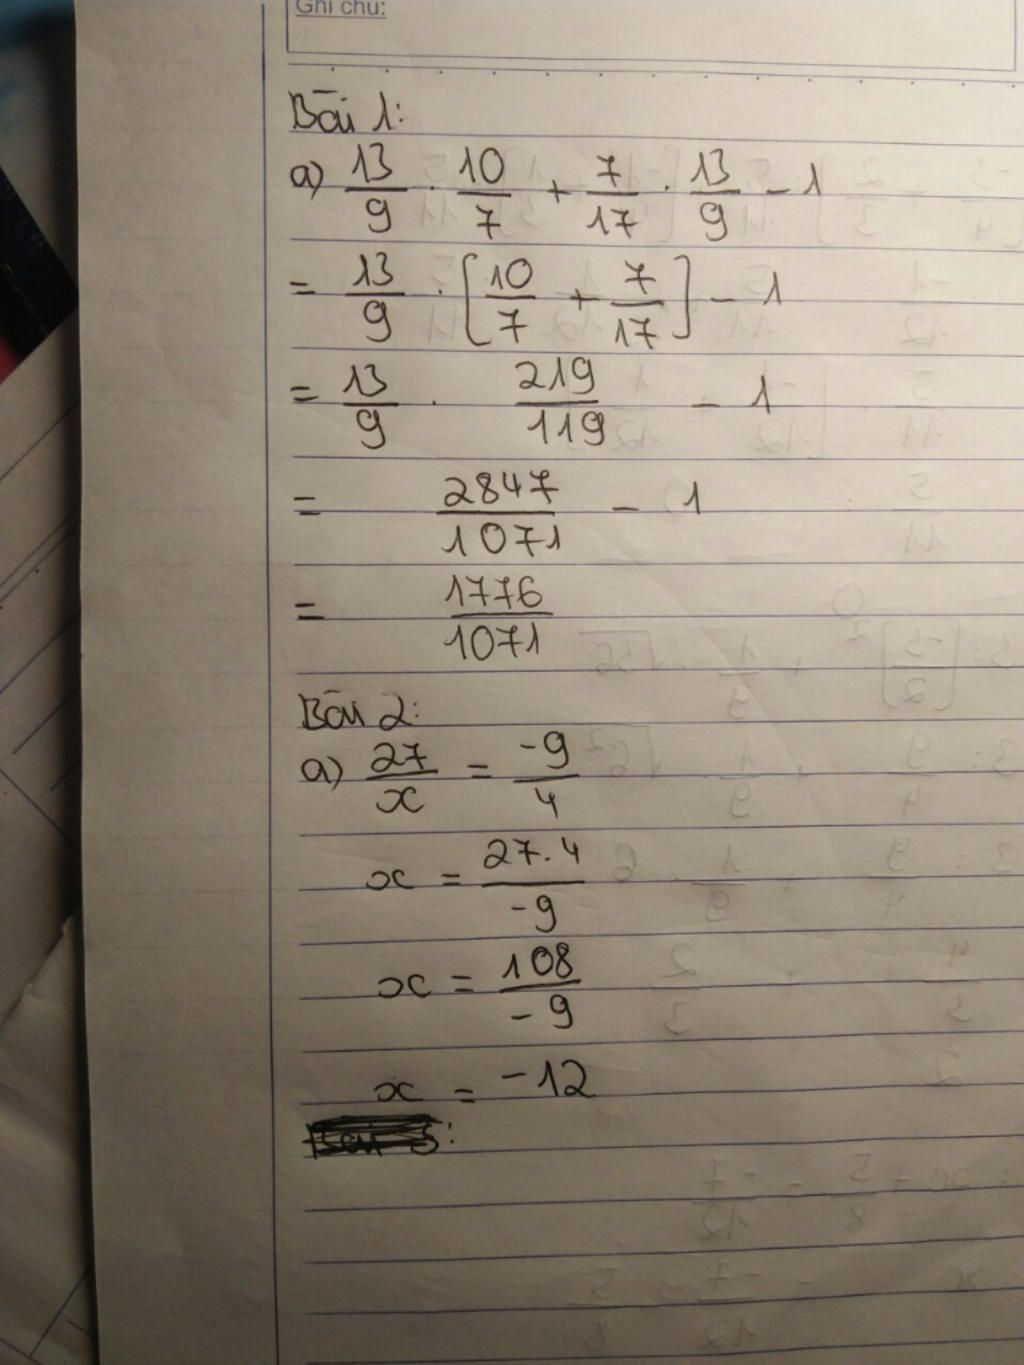 Ghi chú:
Bài 1:
a) 13/9 . 10/7 + 7/17 . 13/9 - 1
= 13/9 . [10/7 + 7/17] - 1
= 13/9 . 219/119 - 1
= 2847/1071 - 1
= 1776/1071
Bài 2:
a) 27/x = -9/4
x = 27.4/-9
x = 108/-9
x = -12